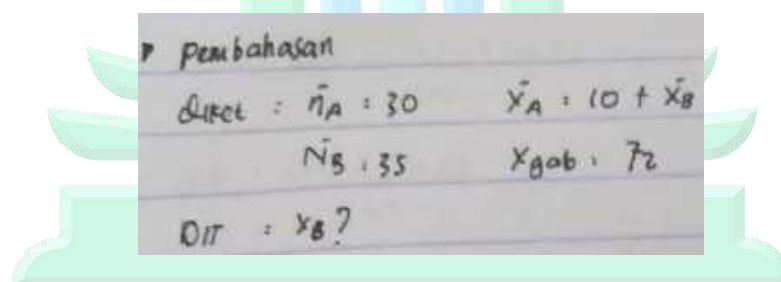 Pembahasan
Diket : n̄A : 30 x̄A : 10 + x̄B
N̄B : 35 Xgab : 72
DIT : XB?